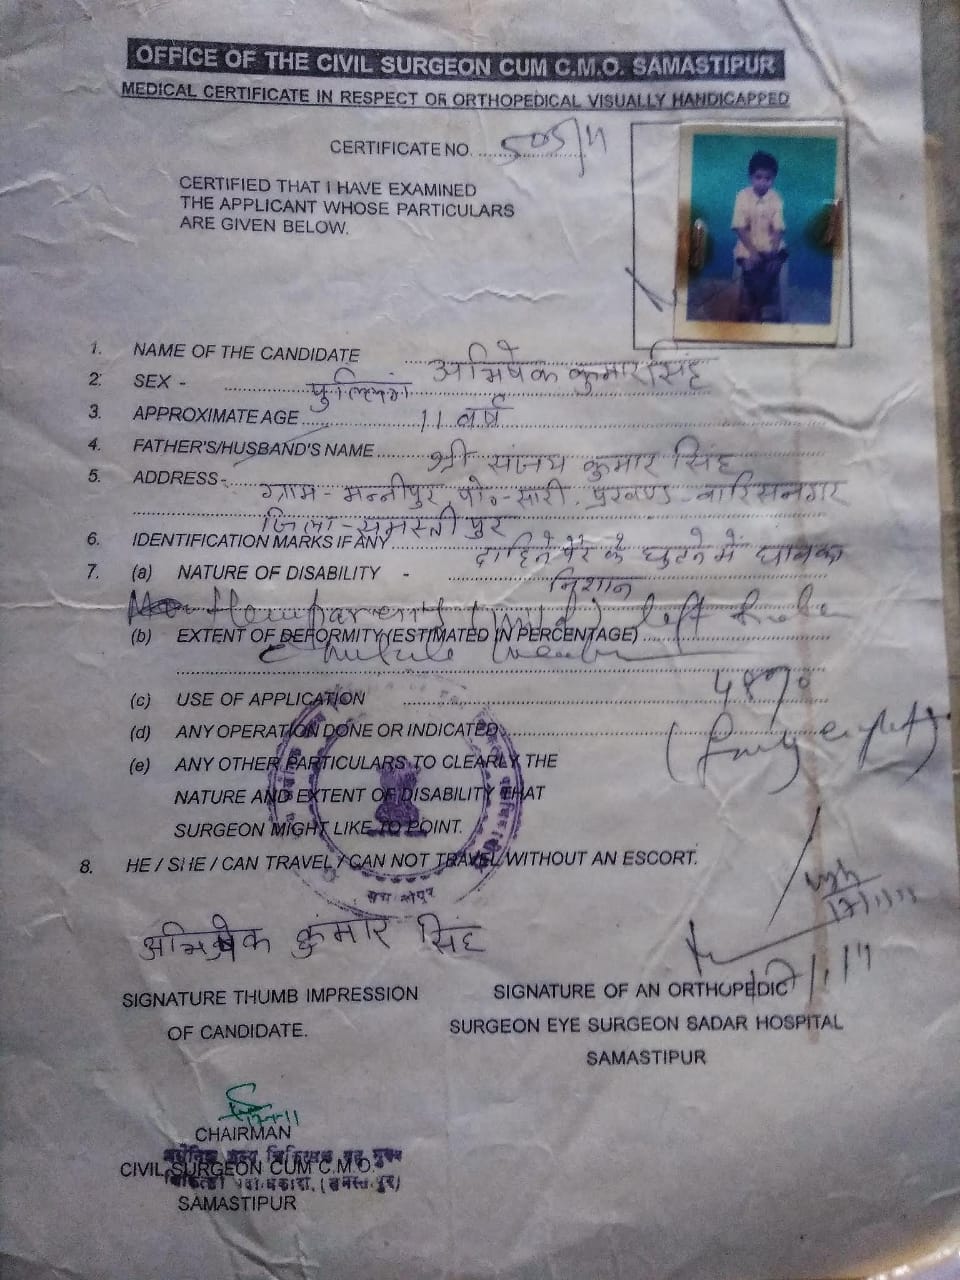 OFFICE OF THE CIVIL SURGEON CUM C.M.O. SAMASTIPUR
MEDICAL CERTIFICATE IN RESPECT OR ORTHOPEDICAL VISUALLY HANDICAPPED
CERTIFICATE NO. 505/11
CERTIFIED THAT I HAVE EXAMINED
THE APPLICANT WHOSE PARTICULARS
ARE GIVEN BELOW.
1. NAME OF THE CANDIDATE अभिषेक कुमार सिंह
2. SEX - पुल्लिंग
3. APPROXIMATE AGE 11 वर्ष
4. FATHER'S/HUSBAND'S NAME श्री संजय कुमार सिंह
5. ADDRESS- ग्राम- मन्नीपुर, पो०- सारी, प्रखण्ड- वारिसनगर
जिला- समस्तीपुर
6. IDENTIFICATION MARKS IF ANY दाहिने पैर के घुटने में घाव का
निशान
7. (a) NATURE OF DISABILITY -
left
(b) EXTENT OF DEFORMITY (ESTIMATED IN PERCENTAGE)
(c) USE OF APPLICATION
(d) ANY OPERATION DONE OR INDICATED
(e) ANY OTHER PARTICULARS TO CLEARLY THE
NATURE AND EXTENT OF DISABILITY THAT
SURGEON MIGHT LIKE TO POINT.
8. HE / SHE / CAN TRAVEL / CAN NOT TRAVEL/WITHOUT AN ESCORT.
अभिषेक कुमार सिंह
SIGNATURE THUMB IMPRESSION
OF CANDIDATE.
SIGNATURE OF AN ORTHOPEDIC
SURGEON EYE SURGEON SADAR HOSPITAL
SAMASTIPUR
CHAIRMAN
CIVIL SURGEON CUM C.M.O.
SAMASTIPUR